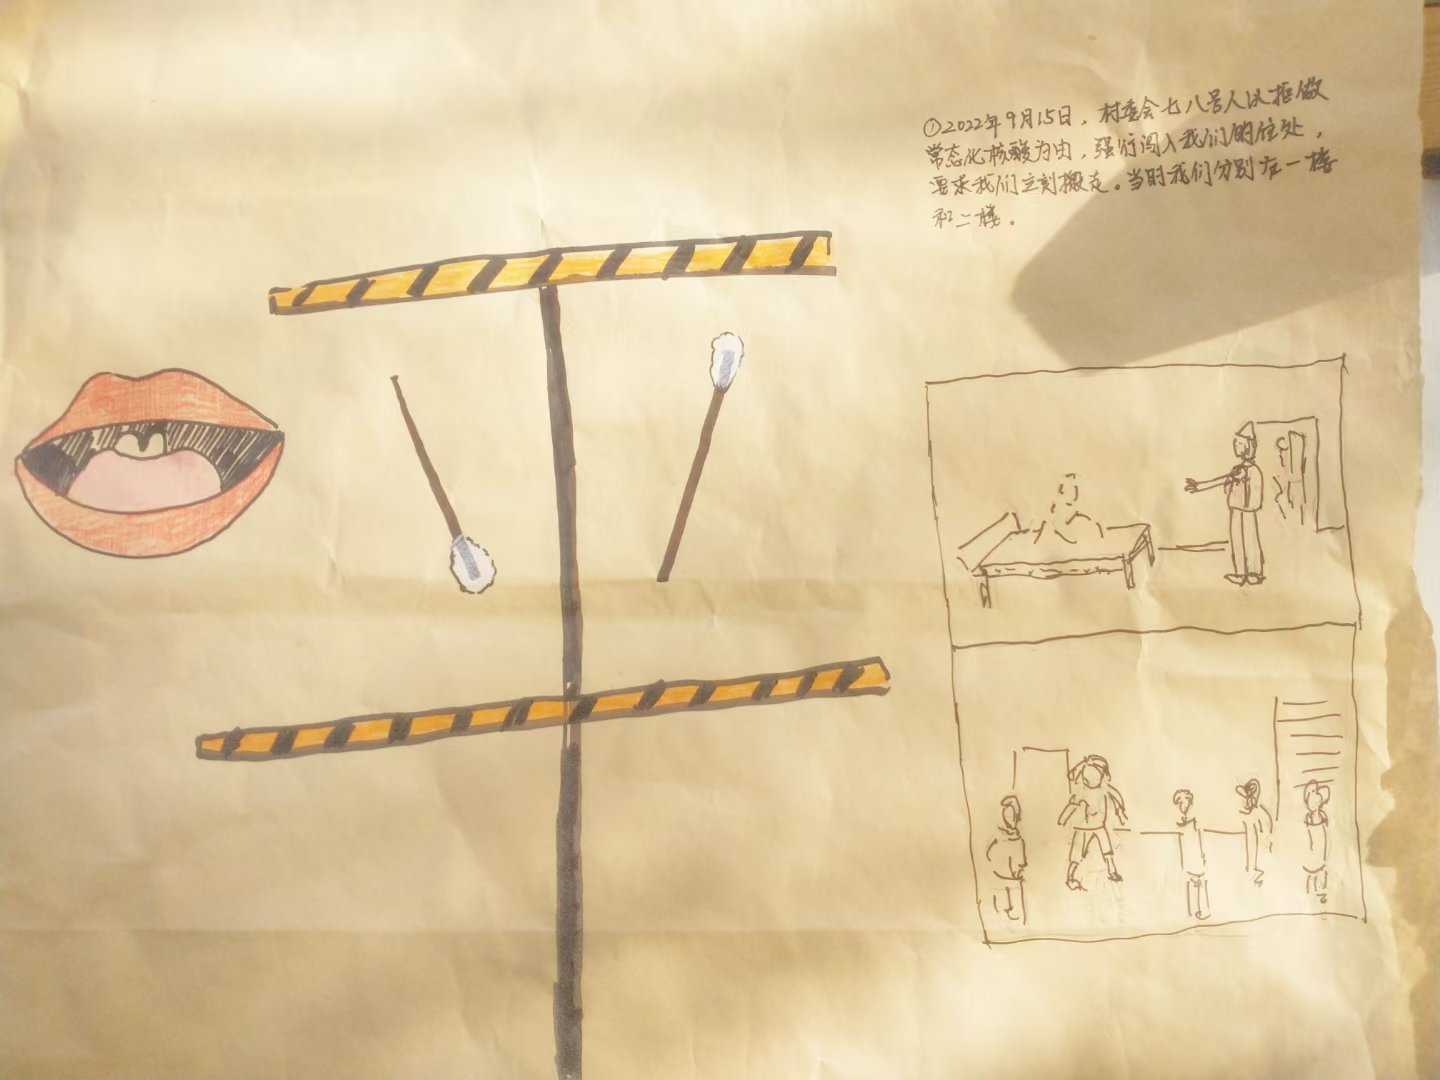 ①2022年9月15日，村委会七八号人以拒做
常态化核酸为由，强行闯入我们的住处，
要求我们立刻搬走。当时我们分别在一楼
和二楼。